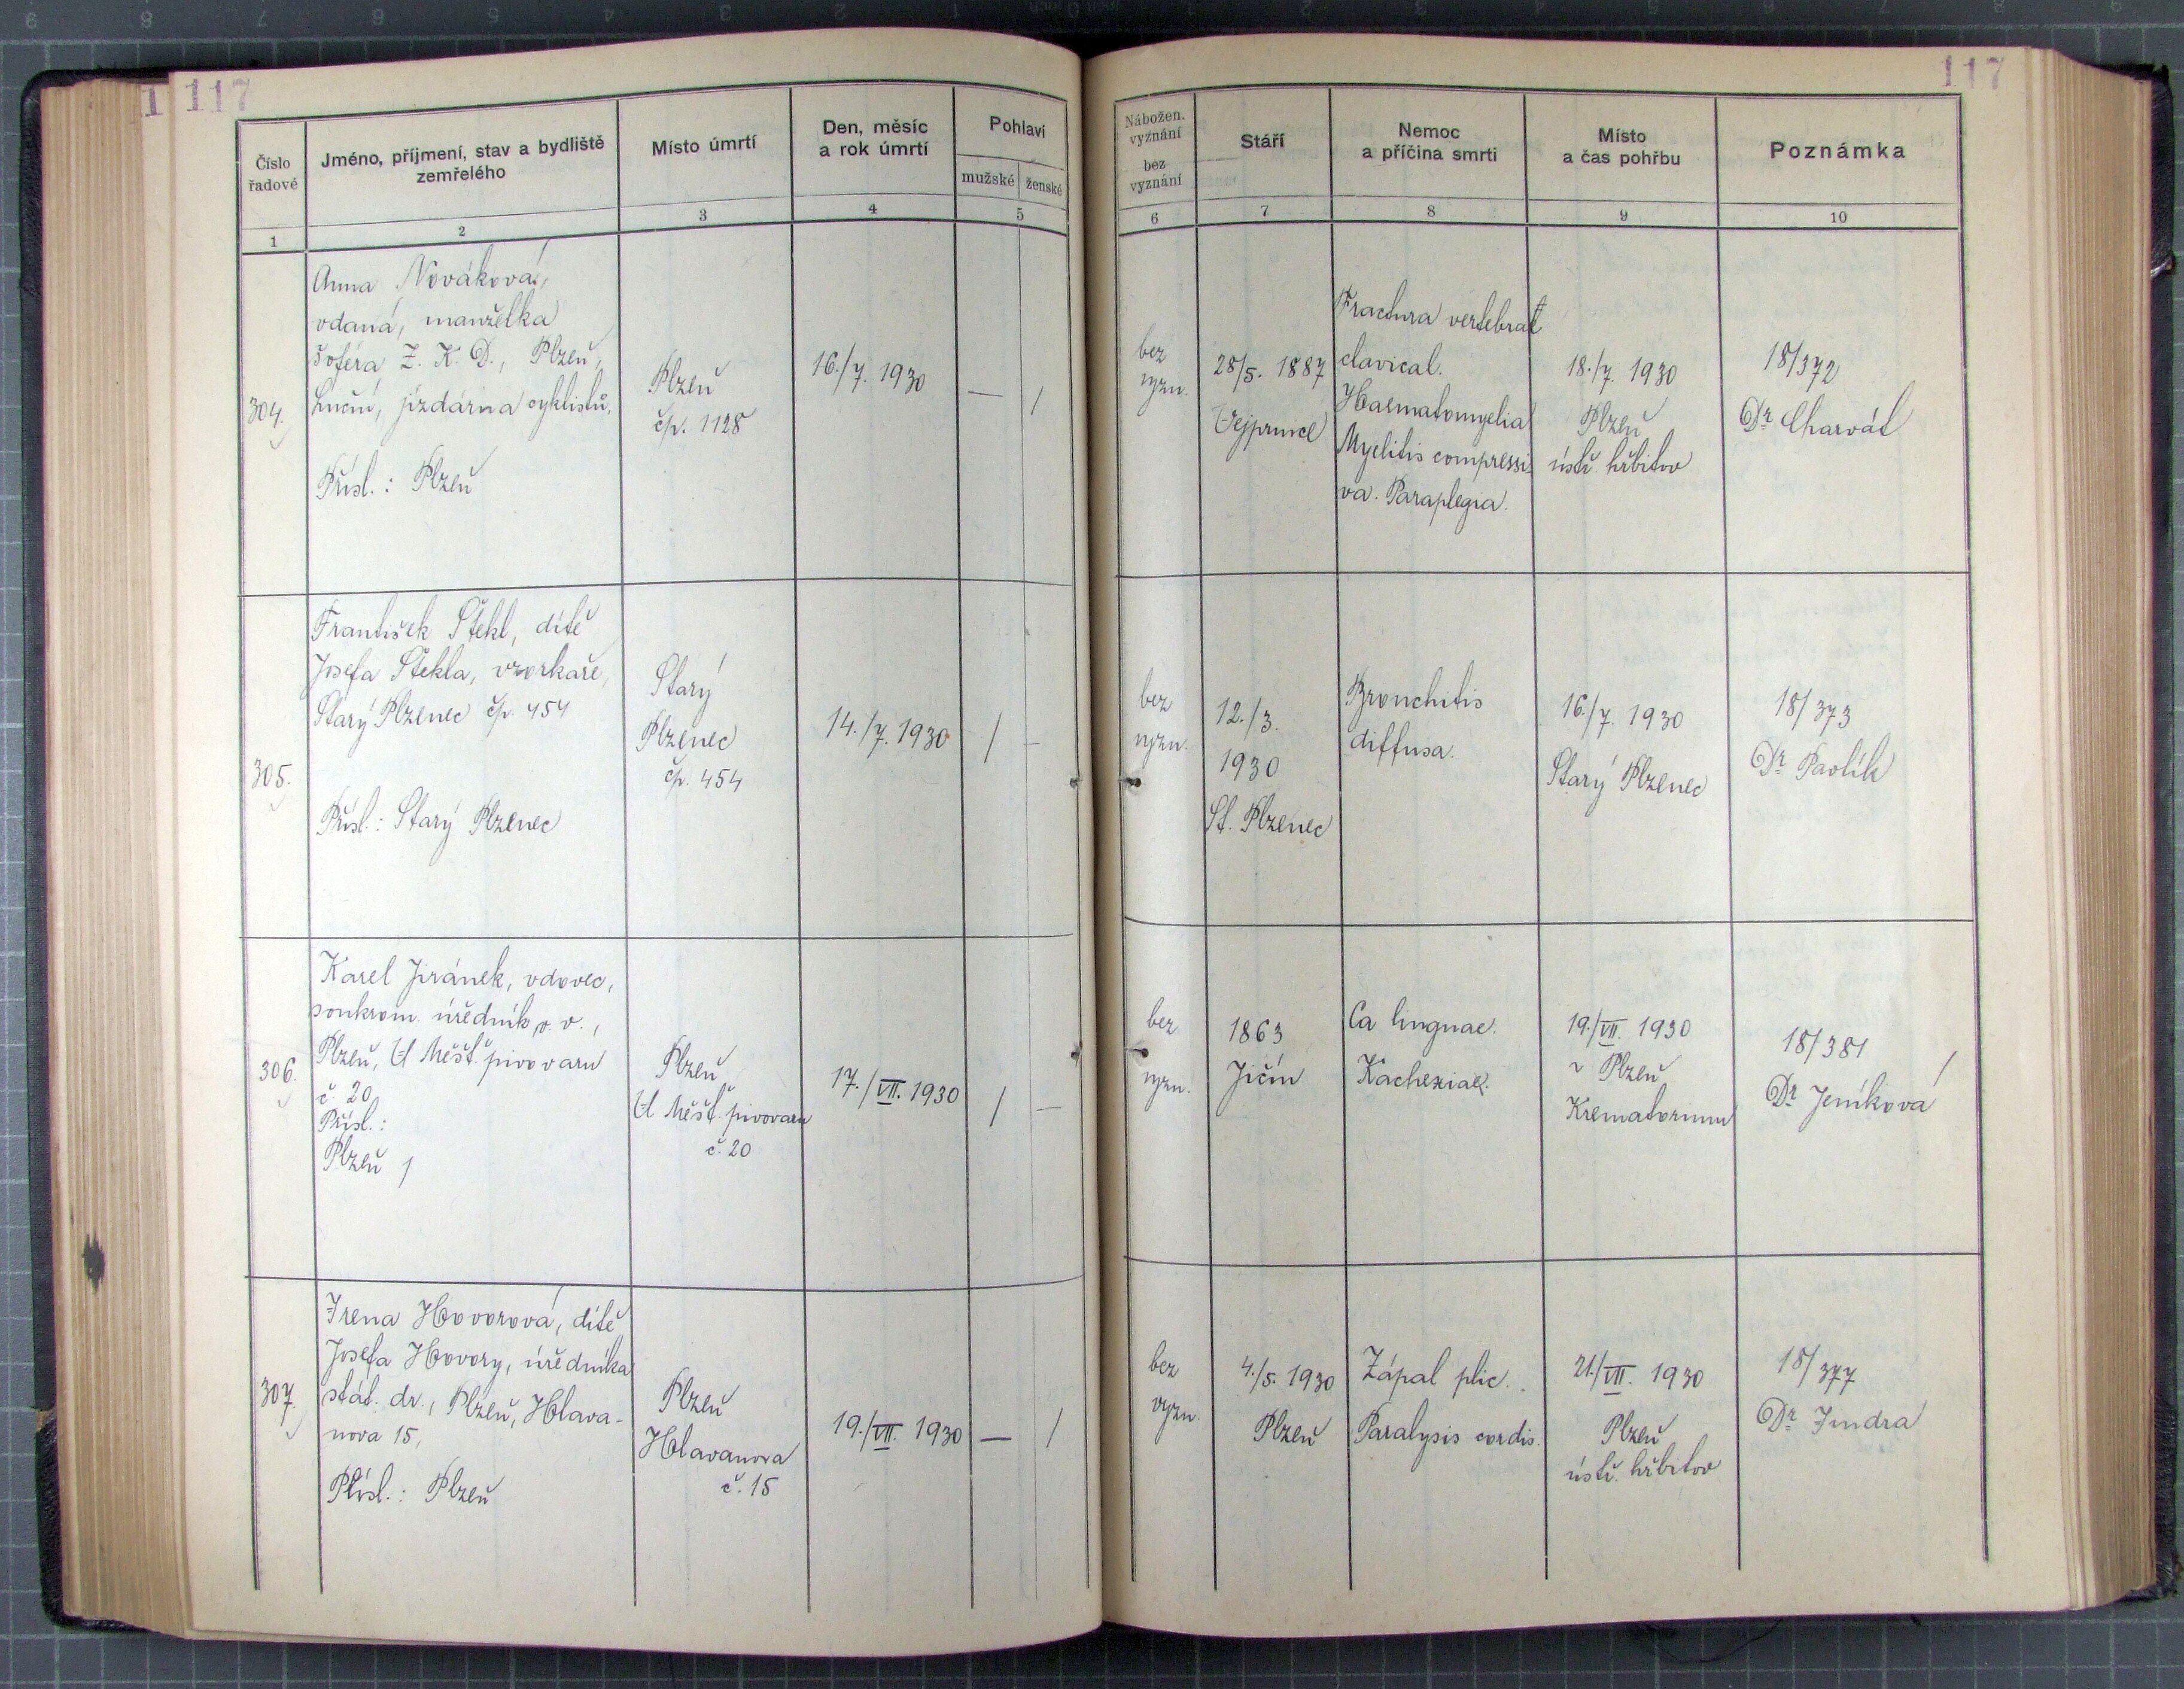 117
117
Číslo řadové
Jméno, příjmení, stav a bydliště
zemřelého
Místo úmrtí
Den, měsíc
a rok úmrtí
Pohlaví
mužské
ženské
Nábožen.
vyznání
bez
vyznání
Stáří
Nemoc
a příčina smrti
Místo
a čas pohřbu
Poznámka
1
2
3
4
5
6
7
8
9
10
304.
Anna Nováková,
vdaná, manželka
šoféra Z. K. D., Plzeň,
Luční, jízdárna cyklistů.
Přísl.: Plzeň
Plzeň
čp. 1128
16./7. 1930
— /
bez
vyzn.
28/5. 1887
Vejprnice
Fractura vertebrae
clavical.
Haematomyelia
Myelitis compressi-
va. Paraplegia.
18./7. 1930
Plzeň
ústř. hřbitov
18/372
Dr Charvát
305.
František Štekl, dítě
Josefa Štekla, vzorkaře,
Starý Plzenec čp. 454
Přísl.: Starý Plzenec
Starý
Plzenec
čp. 454
14./7. 1930
/ —
bez
vyzn.
12./3.
1930
St. Plzenec
Bronchitis
diffusa.
16./7. 1930
Starý Plzenec
18/373
Dr Pavlík
306.
Karel Jiránek, vdovec,
soukrom. úředník v. v.,
Plzeň, U Měšť. pivovaru
č. 20
Přísl.:
Plzeň
Plzeň
U Měšť. pivovaru
č. 20
17./VII. 1930
/ —
bez
vyzn.
1863
Jičín
Ca linguae.
Kachexiae.
19./VII. 1930
v Plzeň
Krematorium
18/381
Dr Jeníková
307.
Irena Hovorová, dítě
Josefa Hovory, úředníka
stát. dr., Plzeň, Hlava-
nova 15,
Přísl.: Plzeň
Plzeň
Hlavanova
č. 15
19./VII. 1930
— /
bez
vyzn.
4./5. 1930
Plzeň
Zápal plic.
Paralysis cordis.
21./VII. 1930
Plzeň
ústř. hřbitov
18/377
Dr Jindra